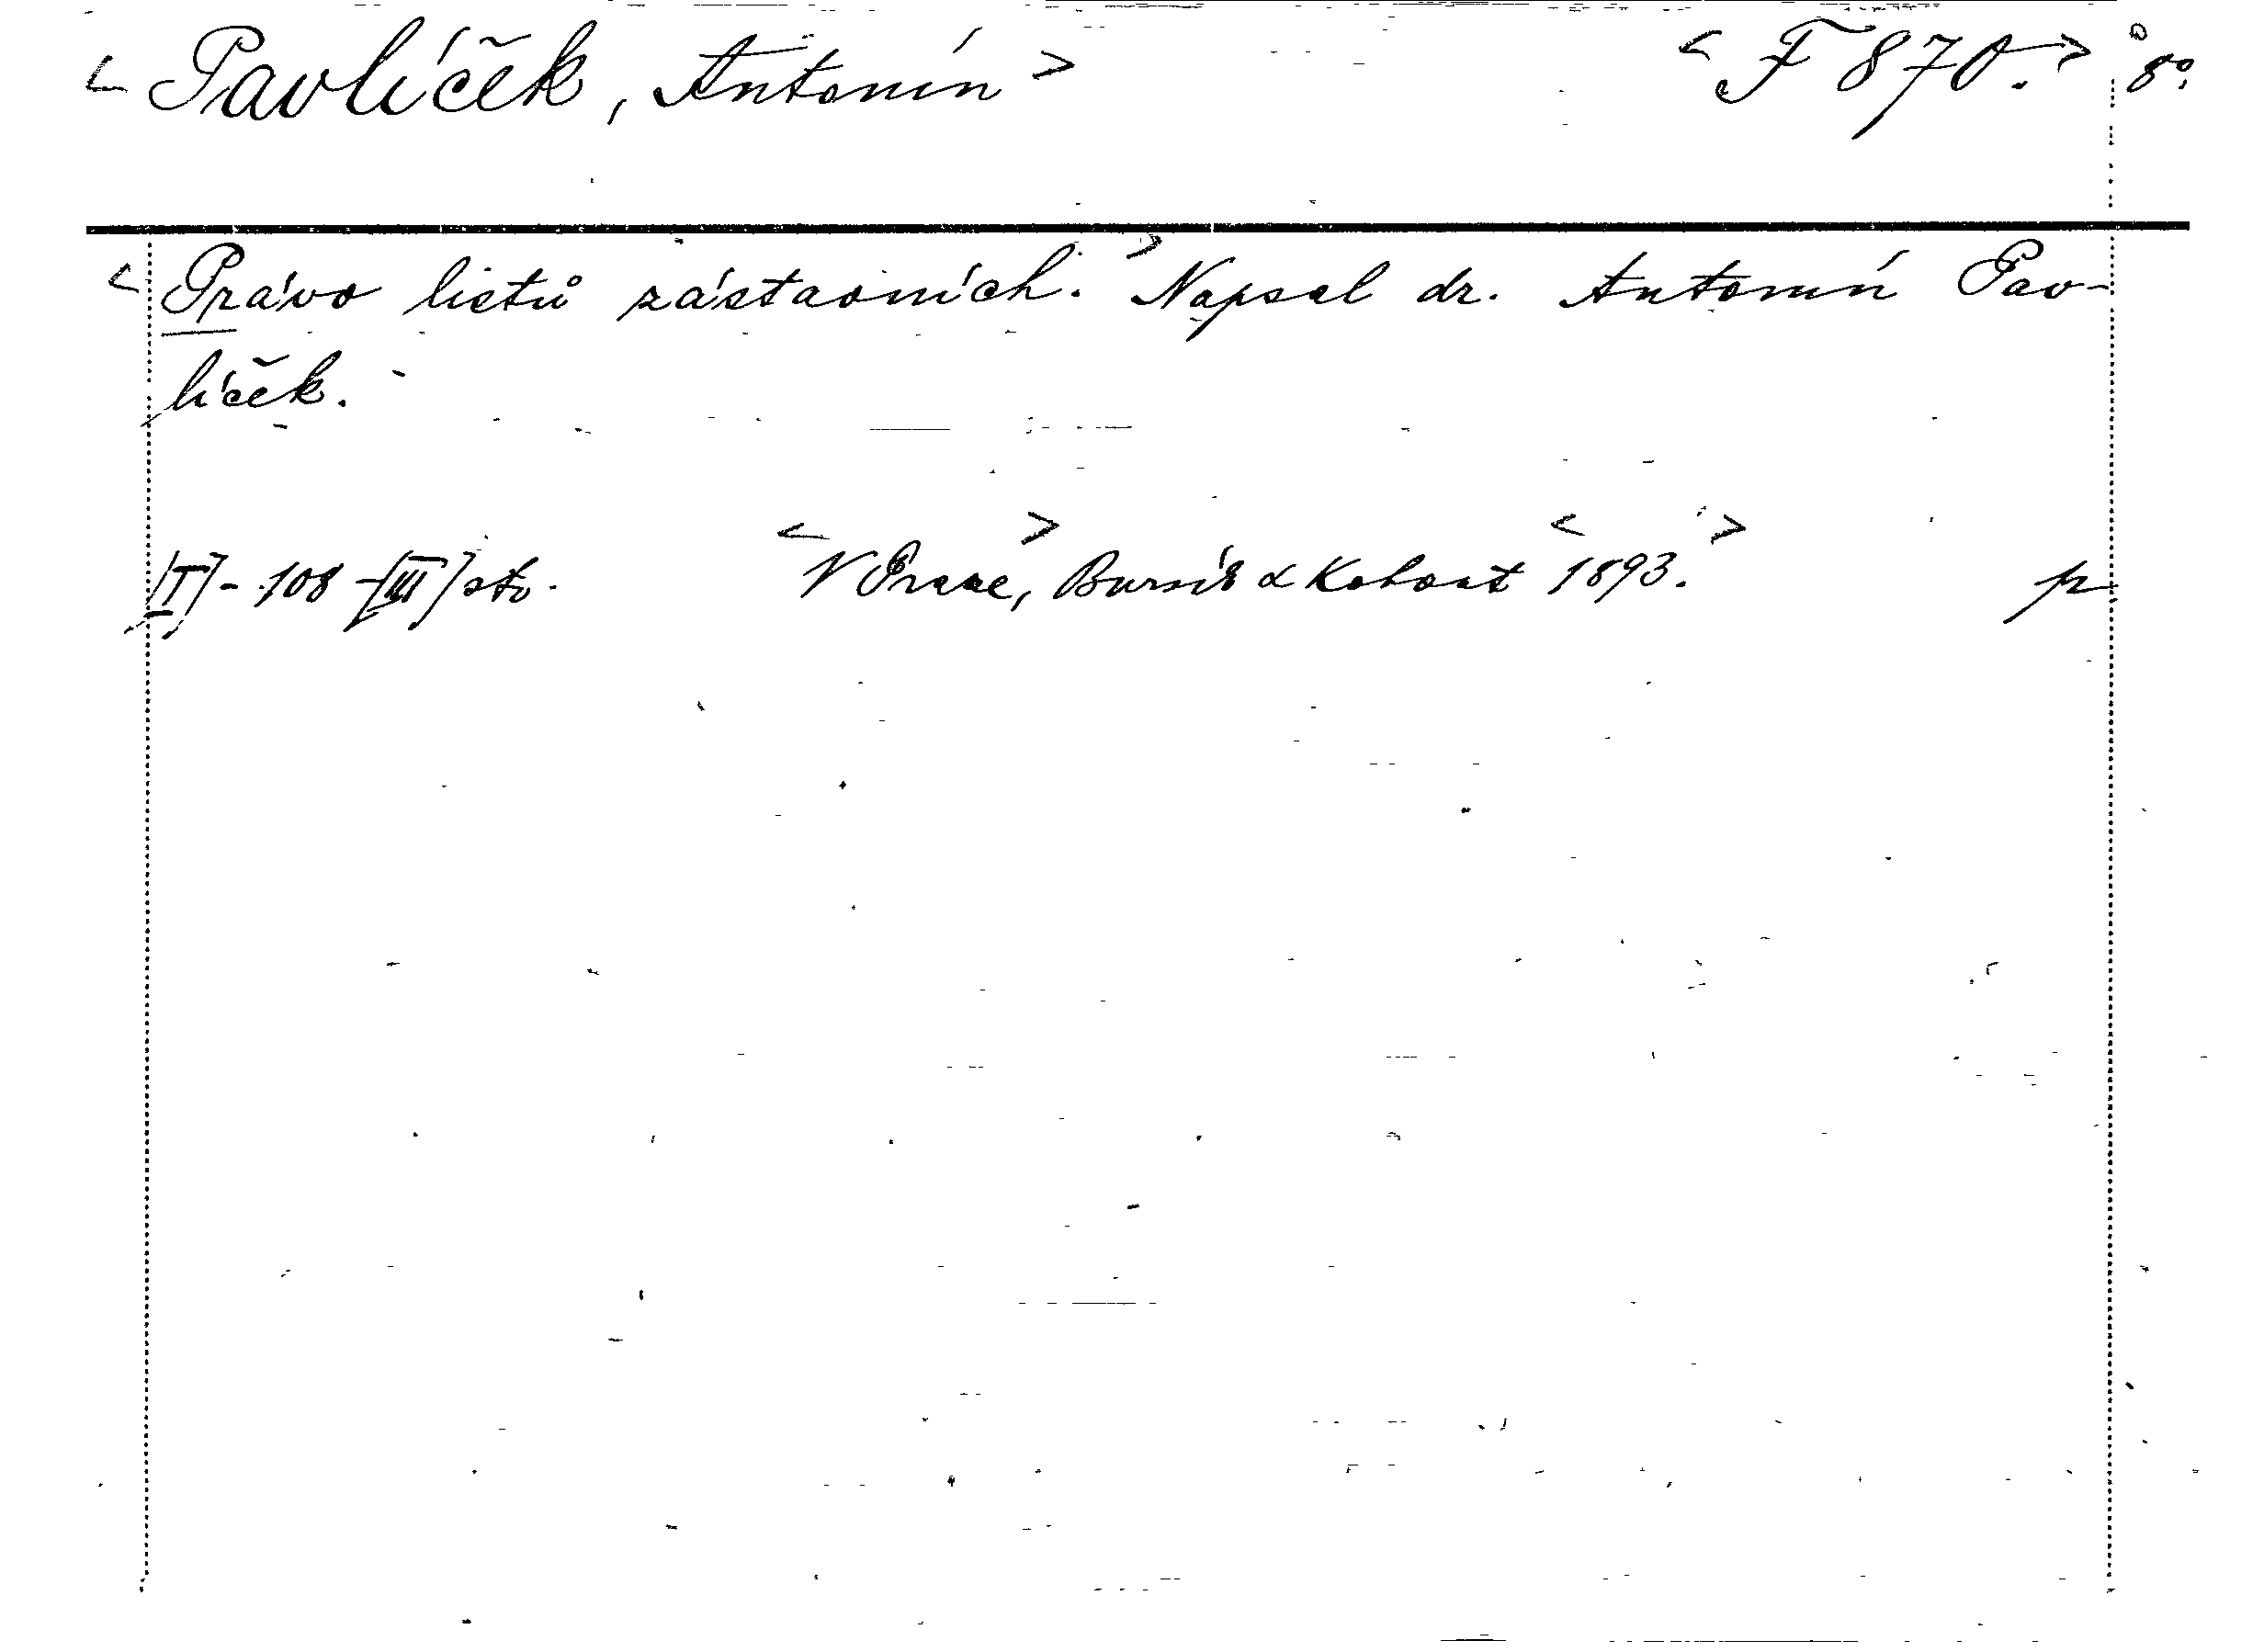 < Pavlíček, Antonín > < F 870. > 8°.
< Právo listů zástavních. > Napsal dr. Antonín Pav-
líček.
[I] - 108 - [III] str. < V Praze, > Bursík & Kohout < 1893. > p